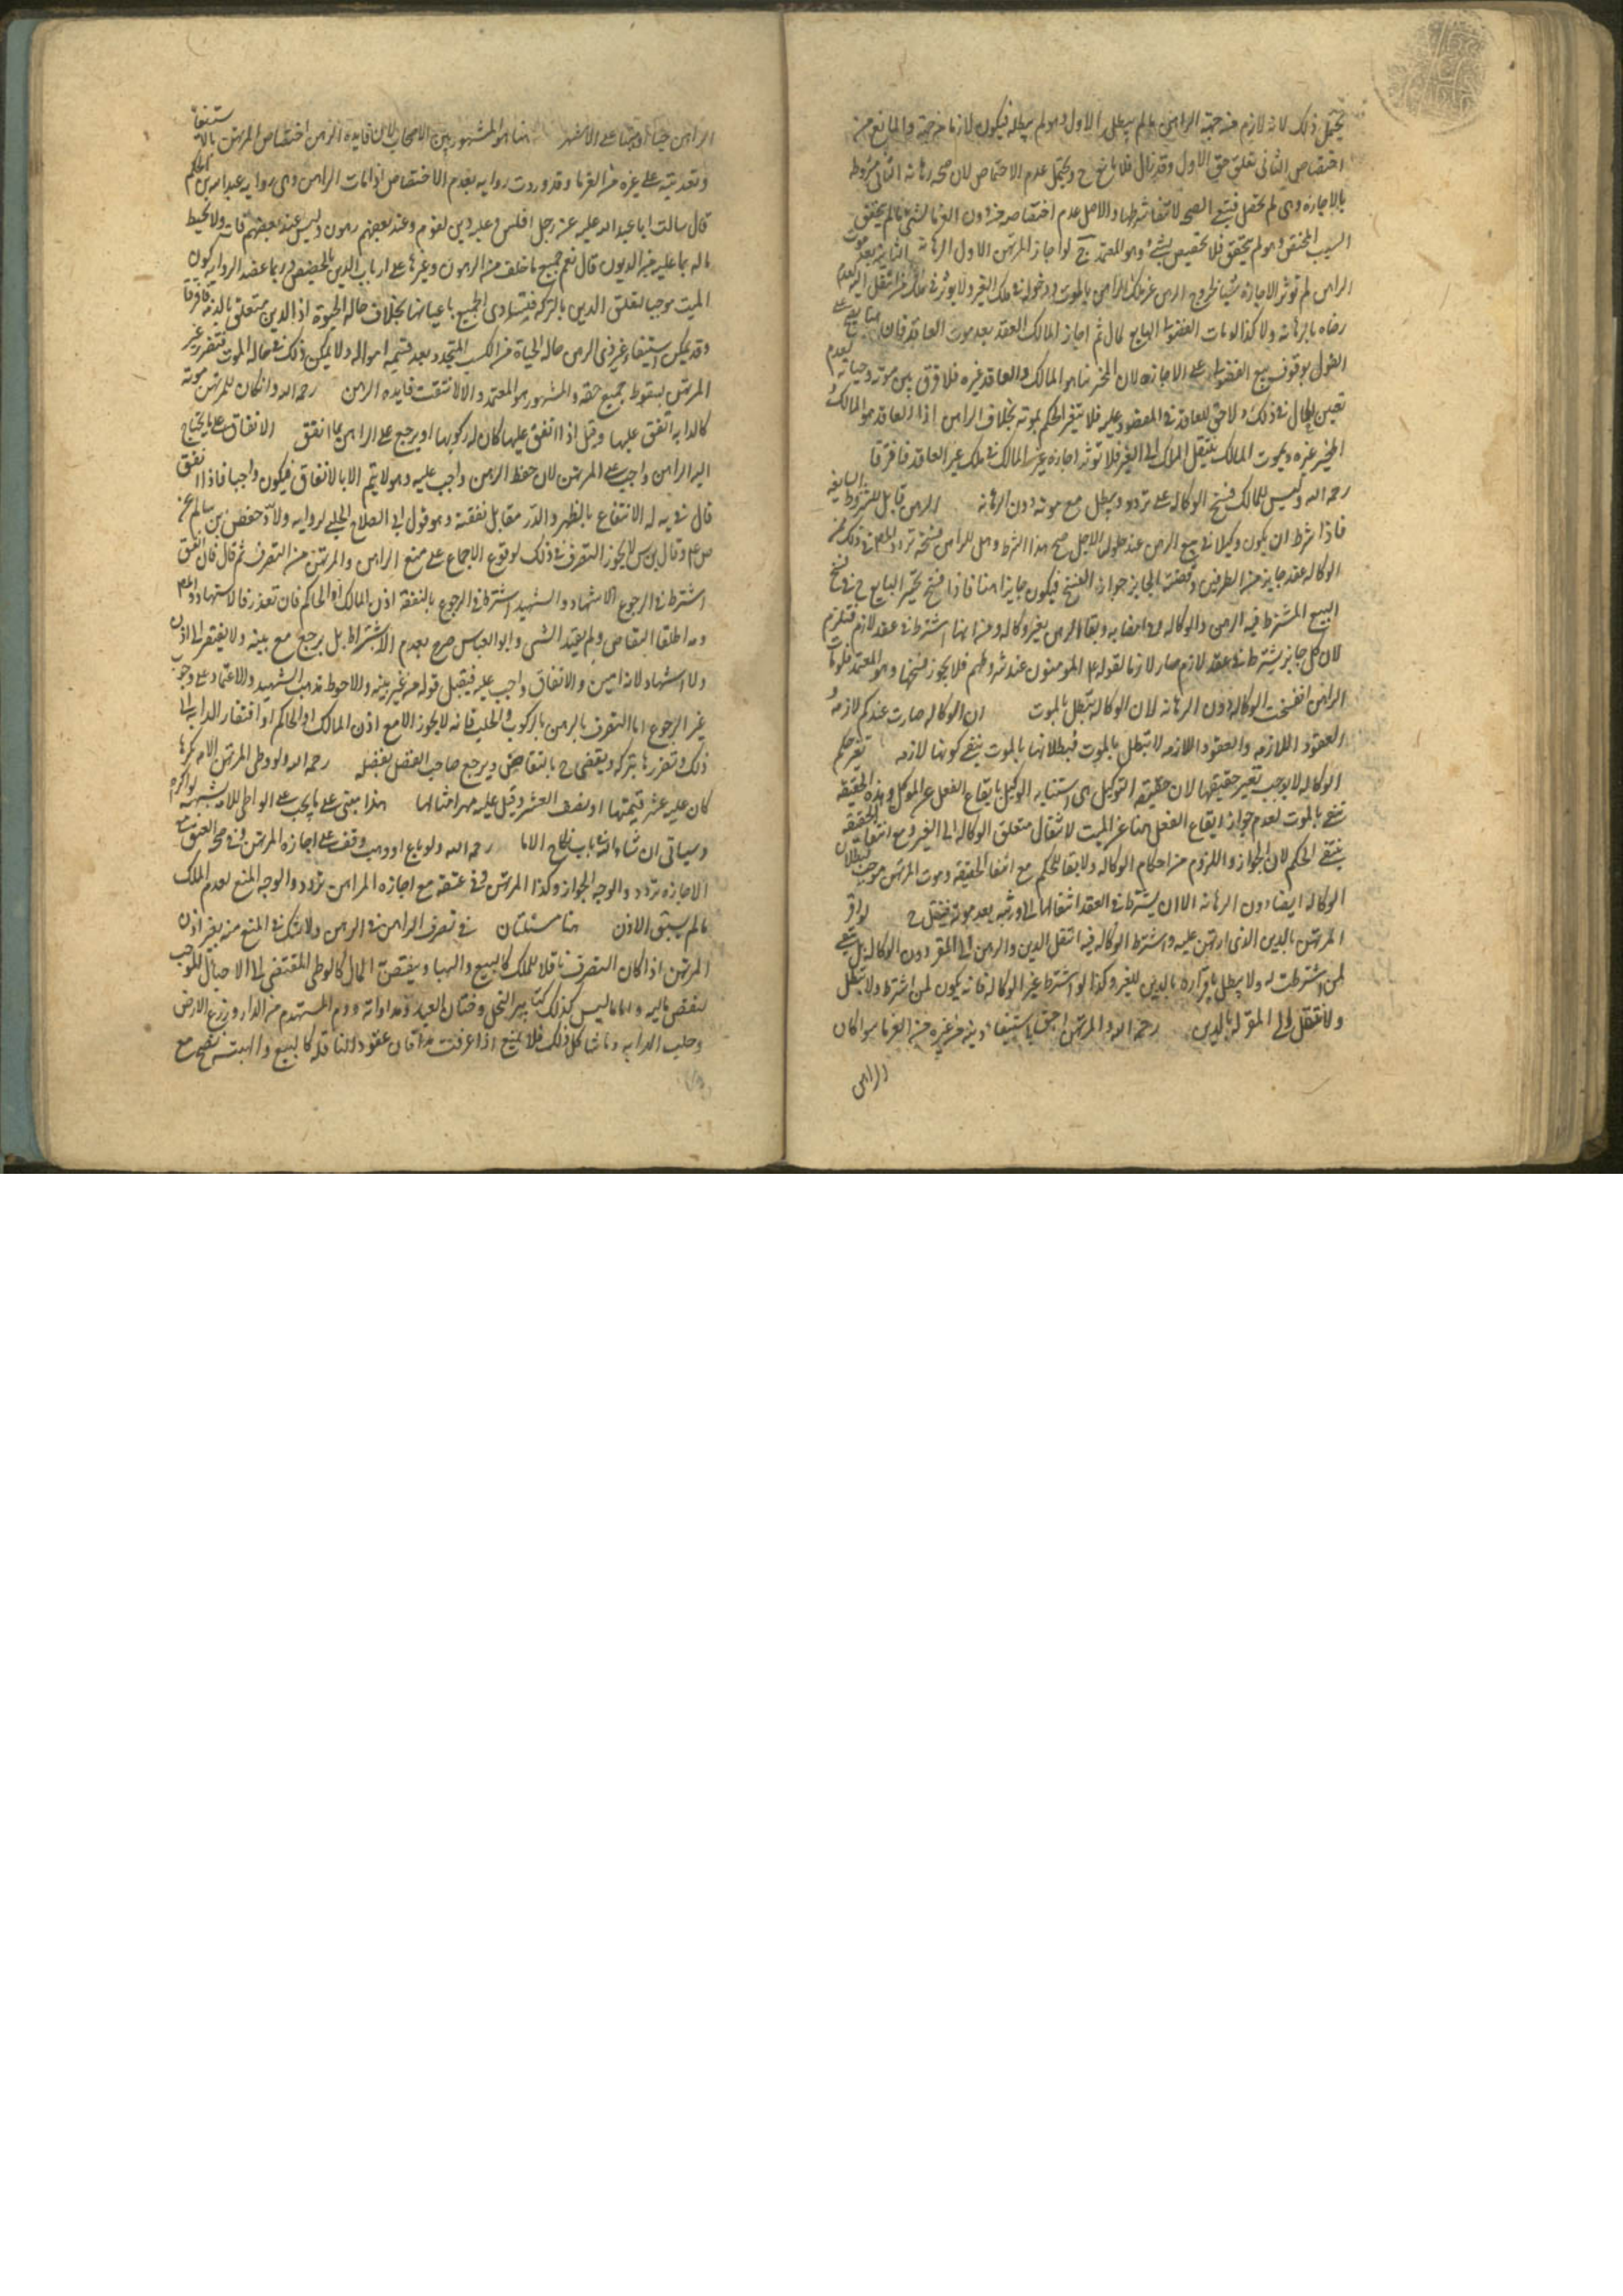 يحتمل ذلك لانه لازم من جهة الراهن ما لم يبطل الاول ولم يبطله فيكون لازما من جهته والمانع من
اختصاص الثاني تعلق حق الاول وقد زال فلا مانع ح ويحتمل عدم الاختصاص لان صحة رهانه الثاني مشروطة
بالاجازة وهي لم تحصل فينتفي الصحه لانتفاء شرطها والاصل عدم اختصاصه من دون الغرما لشيء ما لم يتحقق
السبب المختص وهو لم يتحقق فلا تخصيص بشيء وهو المعتمد ج لو اجاز المرتهن الاول الرهانة الثانية بعد موت
الراهن لم تؤثر الاجازة شيئا لخروج الرهن عن ملك الراهن بالموت ودخوله في ملك الغير ولا يؤثر في ملك من انتقل اليه لعدم
رضاه بالرهانه ولا كذا لو مات الفضولي البايع لمال ثم اجاز المالك العقد بعد موت العاقد فان
القول بوقوف بيع الفضولي على الاجازه لان المخير هنا هو المالك والعاقد غيره فلا فرق بين موته وحياته لعدم
تعين الحال في ذلك ولا حق للعاقد في المعقود عليه فلا يتغير الحكم بموته بخلاف الراهن اذا العاقد هو المالك
المخير غيره وبموت المالك ينتقل الملك الى الغير فلا تؤثر اجازة غير المالك في ملك غير العاقد فافرقا
رحمه الله وليس للمالك فسخ الوكاله على تردد ويبطل مع موته دون الرهانه الرهن قابل للشروط السايغه
فاذا شرط ان يكون وكيلا في بيع الرهن عند حلول الاجل صح هذا الشرط وهل للراهن فسخه تردد المص في ذلك من
الوكاله عقد جايز من الطرفين وقضية الجايز جواز الفسخ فيكون جايزا هنا فاذا فسخ تخير البايع ح في فسخ
البيع المشترط فيه الرهن والوكاله وفي امضايه وبقاء الرهن بغير وكاله ومن انها اشترط في عقد لازم فتلزم
لان كل جايز يشترط في عقد لازم صار لازما لقوله ع المومنون عند شروطهم فلا يجوز فسخها وهو المعتمد فلو مات
الراهن انفسخت الوكاله دون الرهانه لان الوكاله تبطل بالموت ان الوكاله صارت عندكم لازمه و
العقود اللازمه والعقود اللازمه لا تبطل بالموت فبطلانها بالموت ينفي كونها لازمه تغير حكم
الوكاله لا يوجب تغير حقيقتها لان حقيقة التوكيل هي استنابه الوكيل بايقاع الفعل عن الموكل وهذه الحقيقه
تنتفي بالموت لعدم جواز ايقاع الفعل هنا عن الميت لانتقال متعلق الوكاله الى الغير ومع انتفاء الحقيقه
ينتفي الحكم لان الجواز واللزوم من احكام الوكاله ولا بقا للحكم مع انتفا الحقيقه وموت المرتهن موجب لبطلان
الوكاله ايضا دون الرهانه الا ان يشترط في العقد انتقالها الى ورثته بعد موته فينتقل ح لو اقر
المرتهن بالدين الذي ارتهن عليه واشترط الوكاله فيه انتقل الدين والرهن الى المقر دون الوكاله بل تبقى
لمن اشترطت له ولا يبطل باقراره بالدين للغير وكذا لو اشترط غير الوكاله فانه يكون لمن اشترط ولا تبطل
ولا تنتقل الى المقر له بالدين رحمه الله والمرتهن احق باستيفاء دينه من غيره من الغرما سوا كان
الراهن
الراهن حيا او ميتا على الاشهر هذا هو المشهور بين الاصحاب لان فايدة الرهن اختصاص المرتهن بالاستيفاء
وتقدمته على غيره من الغرما وقد وردت روايه بعدم الاختصاص اذا مات الراهن وهي روايه عبد الله بن الحكم
قال سالت ابا عبد الله عليه عن رجل افلس وعليه دين لقوم وعند بعضهم رهون وليس عند بعضهم فمات ولا يحيط
ماله بما عليه من الديون قال نعم جميع ما خلف من الرهون وغيرها على ارباب الدين بالحصص وربما عضد الروايه كون
الميت موجبا لتعلق الدين بالتركه فيتساوى الجميع باعيانها بخلاف حاله الحيوة اذ الدين متعلق بالذمه فافرقا
وقد يمكن استيفاء غير ذي الرهن حاله الحياة من الكسب المتجدد بعد قسمة امواله ولا يمكن ذلك في حاله الموت فتضرر غير
المرتهن بسقوط جميع حقه والمشهور هو المعتمد والا لانتفت فايده الرهن رحمه الله وان كان للرهن مونه
كالدابه انفق عليها وقيل اذا انفق عليها كان له ركوبها او يرجع على الراهن بما انفق الانفاق على ما يحتاج
اليه الراهن واجب على المرتهن لان حفظ الرهن واجب عليه وهو لا يتم الا بالانفاق فيكون واجبا فاذا انفق
قال في يه له الانتفاع بالظهر والدر مقابل نفقته وهو قول ابي الصلاح الحلبي لروايه ولاد حفص بن سالم عن
ص ع وقال بن س لا يجوز التصرف في ذلك لوقوع الاجماع على منع الراهن والمرتهن من التصرف ثم قال فان انفق
اشترط في الرجوع الاشهاد والشهيد اشترط في الرجوع بالنفقه اذن المالك او الحاكم فان تعذر فالاشهاد والمص
ومه اطلقا التقاص ولم يقيد الشي وابو العباس صرح بعدم الاشتراط بل يرجع مع بينه ولا يفتقر الى اذن
ولا اشهاد لانه امين والانفاق واجب عليه فيقبل قوله من غير بينه والاحوط مذهب الشهيد والاعتماد على وجوب
غير الرجوع اما التصرف بالرهن بالركوب والحلب فانه لا يجوز الا مع اذن المالك او الحاكم او افتقار الدابه الى
ذلك وتضررها بتركه ويقضي ح بالتقاص ويرجع صاحب الفضل بفضله رحمه الله ولو وطى المرتهن الامه مكرها
كان عليه عشر قيمتها او نصف العشر وقيل عليه مهر امثالها هذا مبني على ما يجب على الواطي للامه بشبهه او اكراه
وسياتي ان شاء الله في باب نكاح الاما رحمه الله ولو باع او وهب وقف على اجازه المرتهن وفي صحه العتق مع
الاجازه تردد والوجه الجواز وكذا المرتهن وفي عتقه مع اجازه الراهن تردد والوجه المنع لعدم الملك
ما لم يسبق الاذن هنا مسئلتان في تصرف الراهن في الرهن ولا شك في المنع منه بغير اذن
المرتهن اذا كان التصرف ناقلا للملك كالبيع والهبا وينقص المال كالوطي المقتضي الى الاحبال الموجب
لنقص ماليه واما ما ليس كذلك كتابير النخل وختان العبد ومداواته وردم المستهدم من الدار وزرع الارض
وحلب الدابه وما شاكل ذلك فلا يمنع اذا عرفت هذا فان عقود الناقله كالبيع والهبة تصح مع